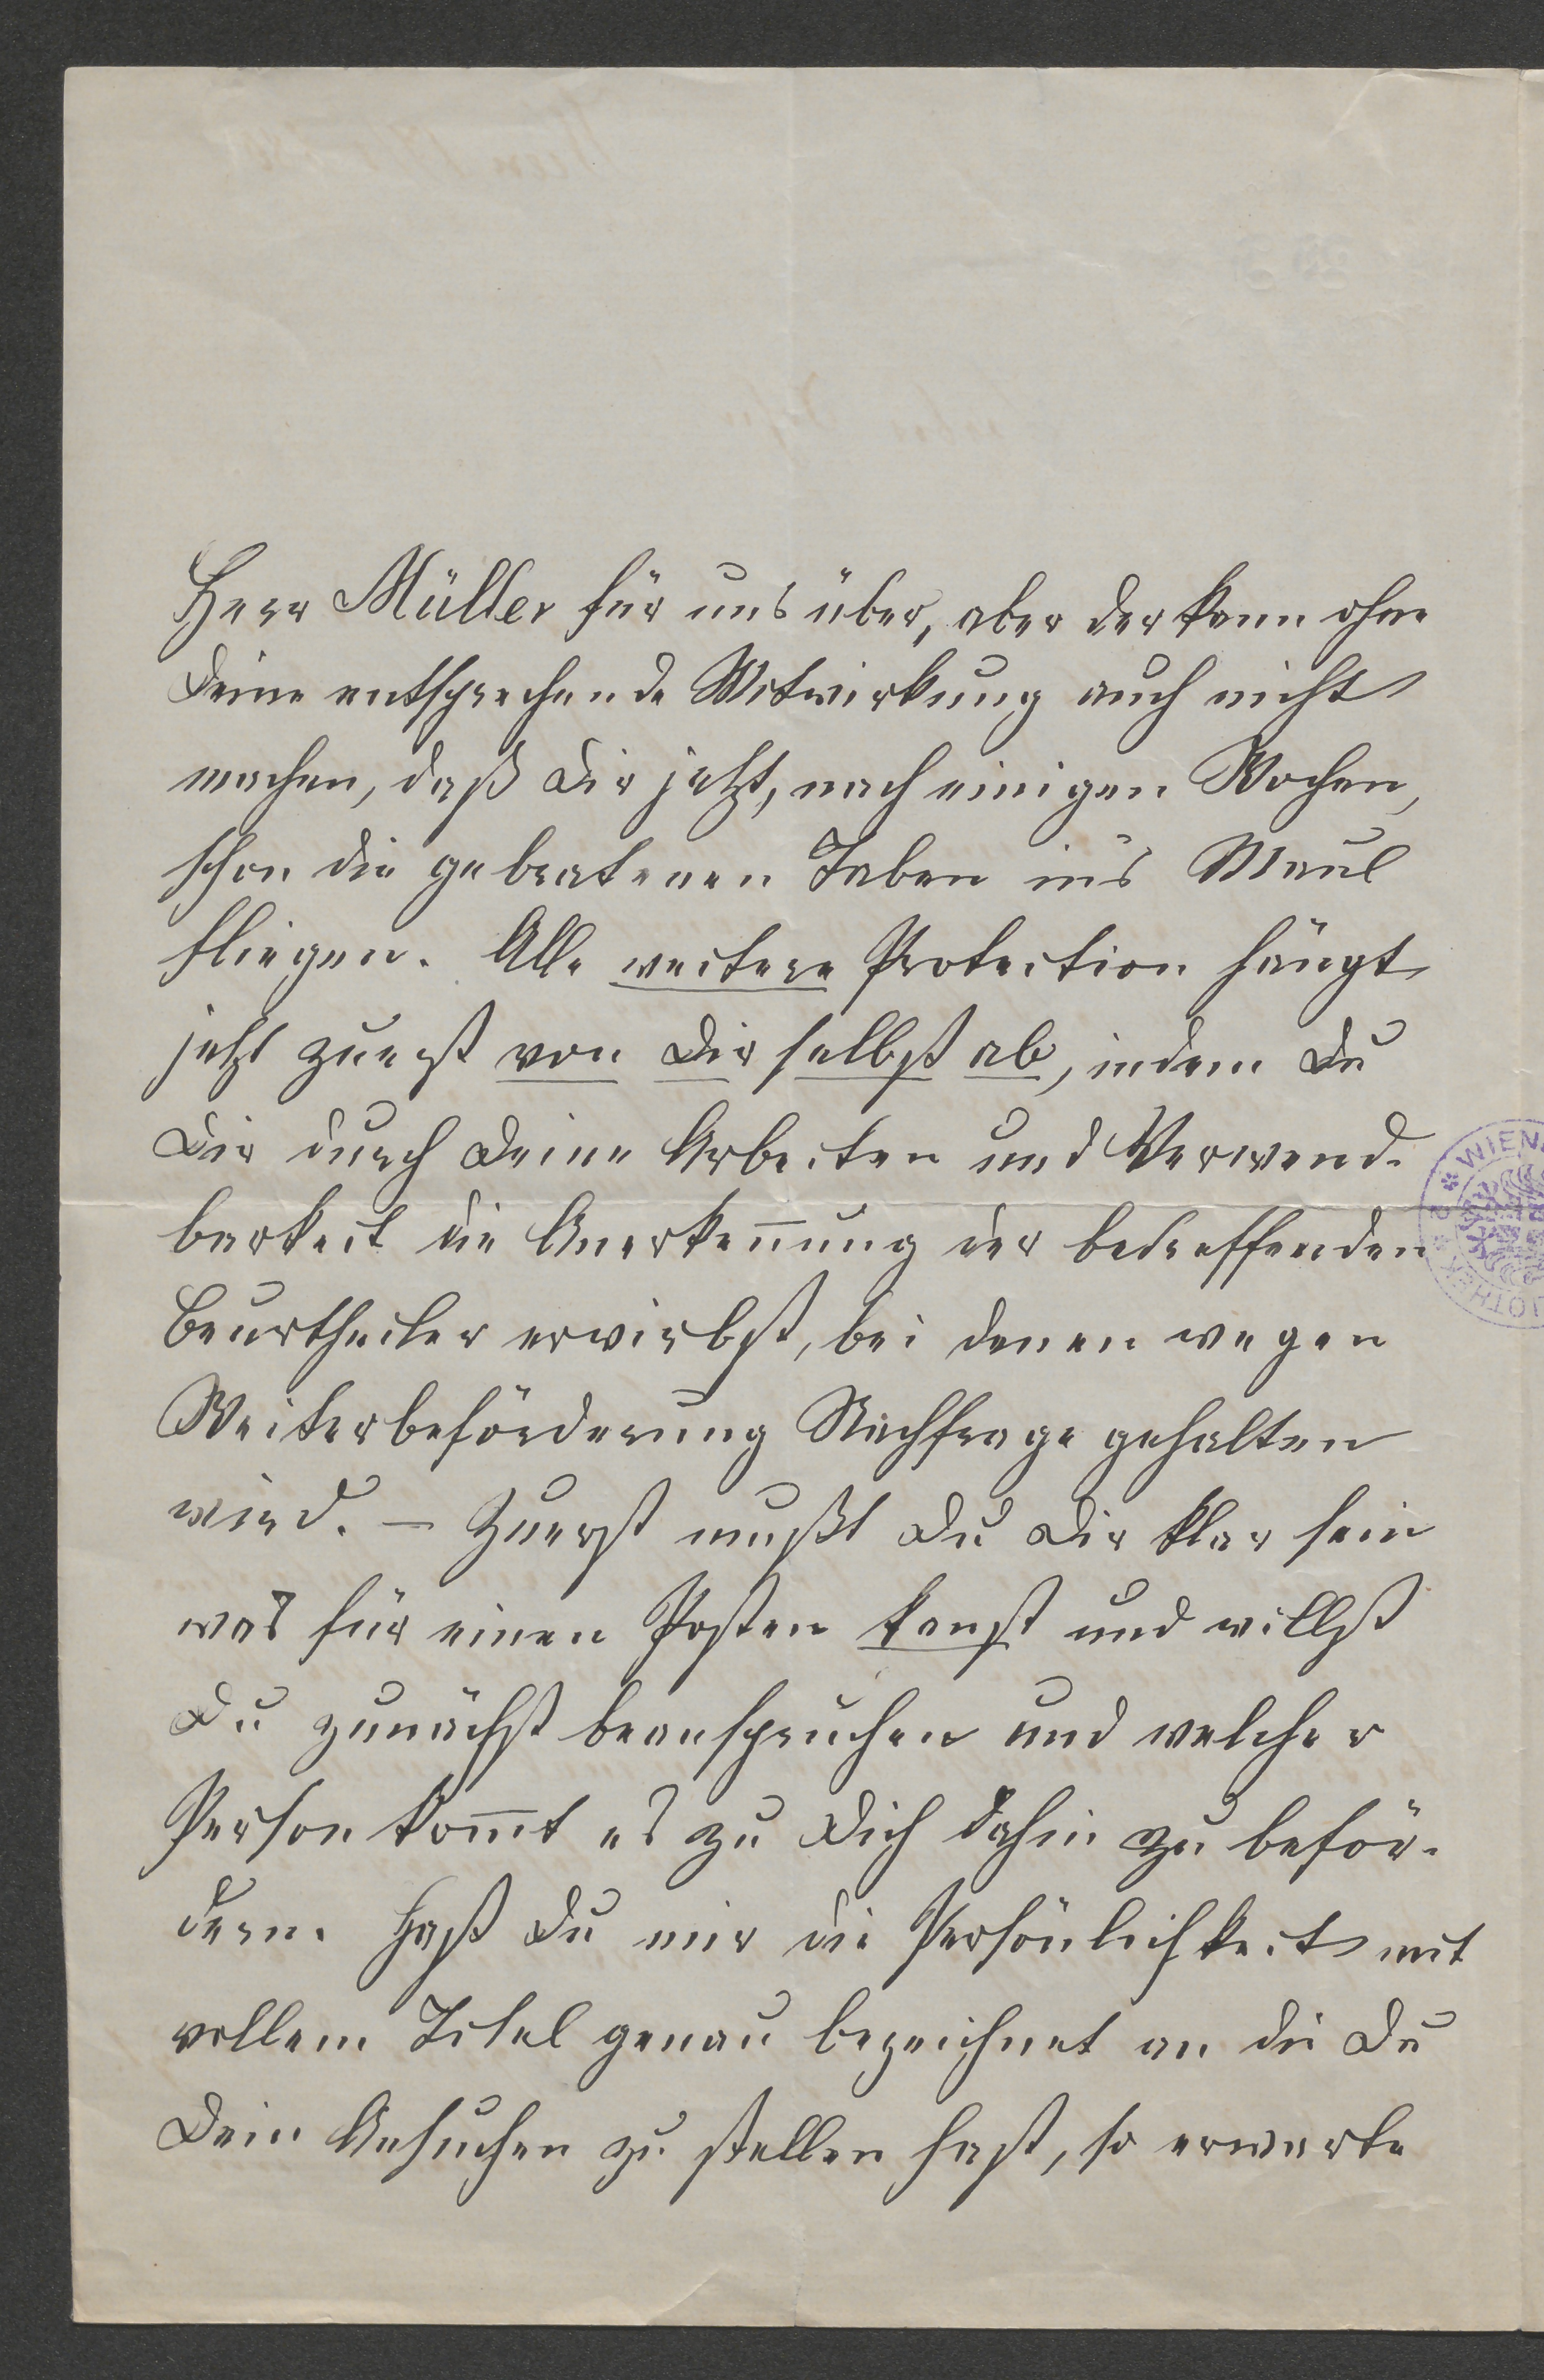 Herr Müller für uns über, aber der kann ohne
Deine entsprechende Mitwirkung auch nicht
machen, daß Dir jetzt, nach einigen Wochen,
schon die gebratenen Tauben in's Maul
fliegen. Alle weitere Protection hängt
jetzt zuerst von Dir selbst ab, indem Du
Dir durch Deine Arbeiten und Verwend-
barkeit die Anerkeñung der betreffenden
Beurtheiler erwirbst, bei denen wegen
Weiterbeförderung Nachfrage gehalten
wird. – Zuerst mußt Du Dir klar sein
was für einen Posten kanst und willst
Du zunächst beanspruchen und welcher
Person kom̄t es zu Dich dahin zu beför-
dern. Hast Du mir die Persönlichkeit mit
vollem Titel genau bezeichnet an die Du
Dein Ansuchen zu stellen hast, so erwarte
WIEN